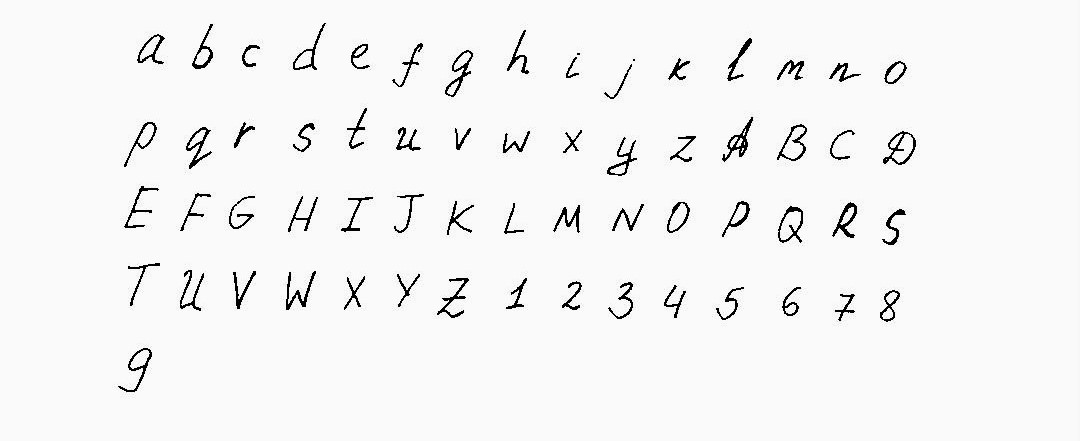 a b c d e f g h i j k l m n o
p q r s t u v w x y z A B C D
E F G H I J K L M N O P Q R S
T U V W X Y Z 1 2 3 4 5 6 7 8
9